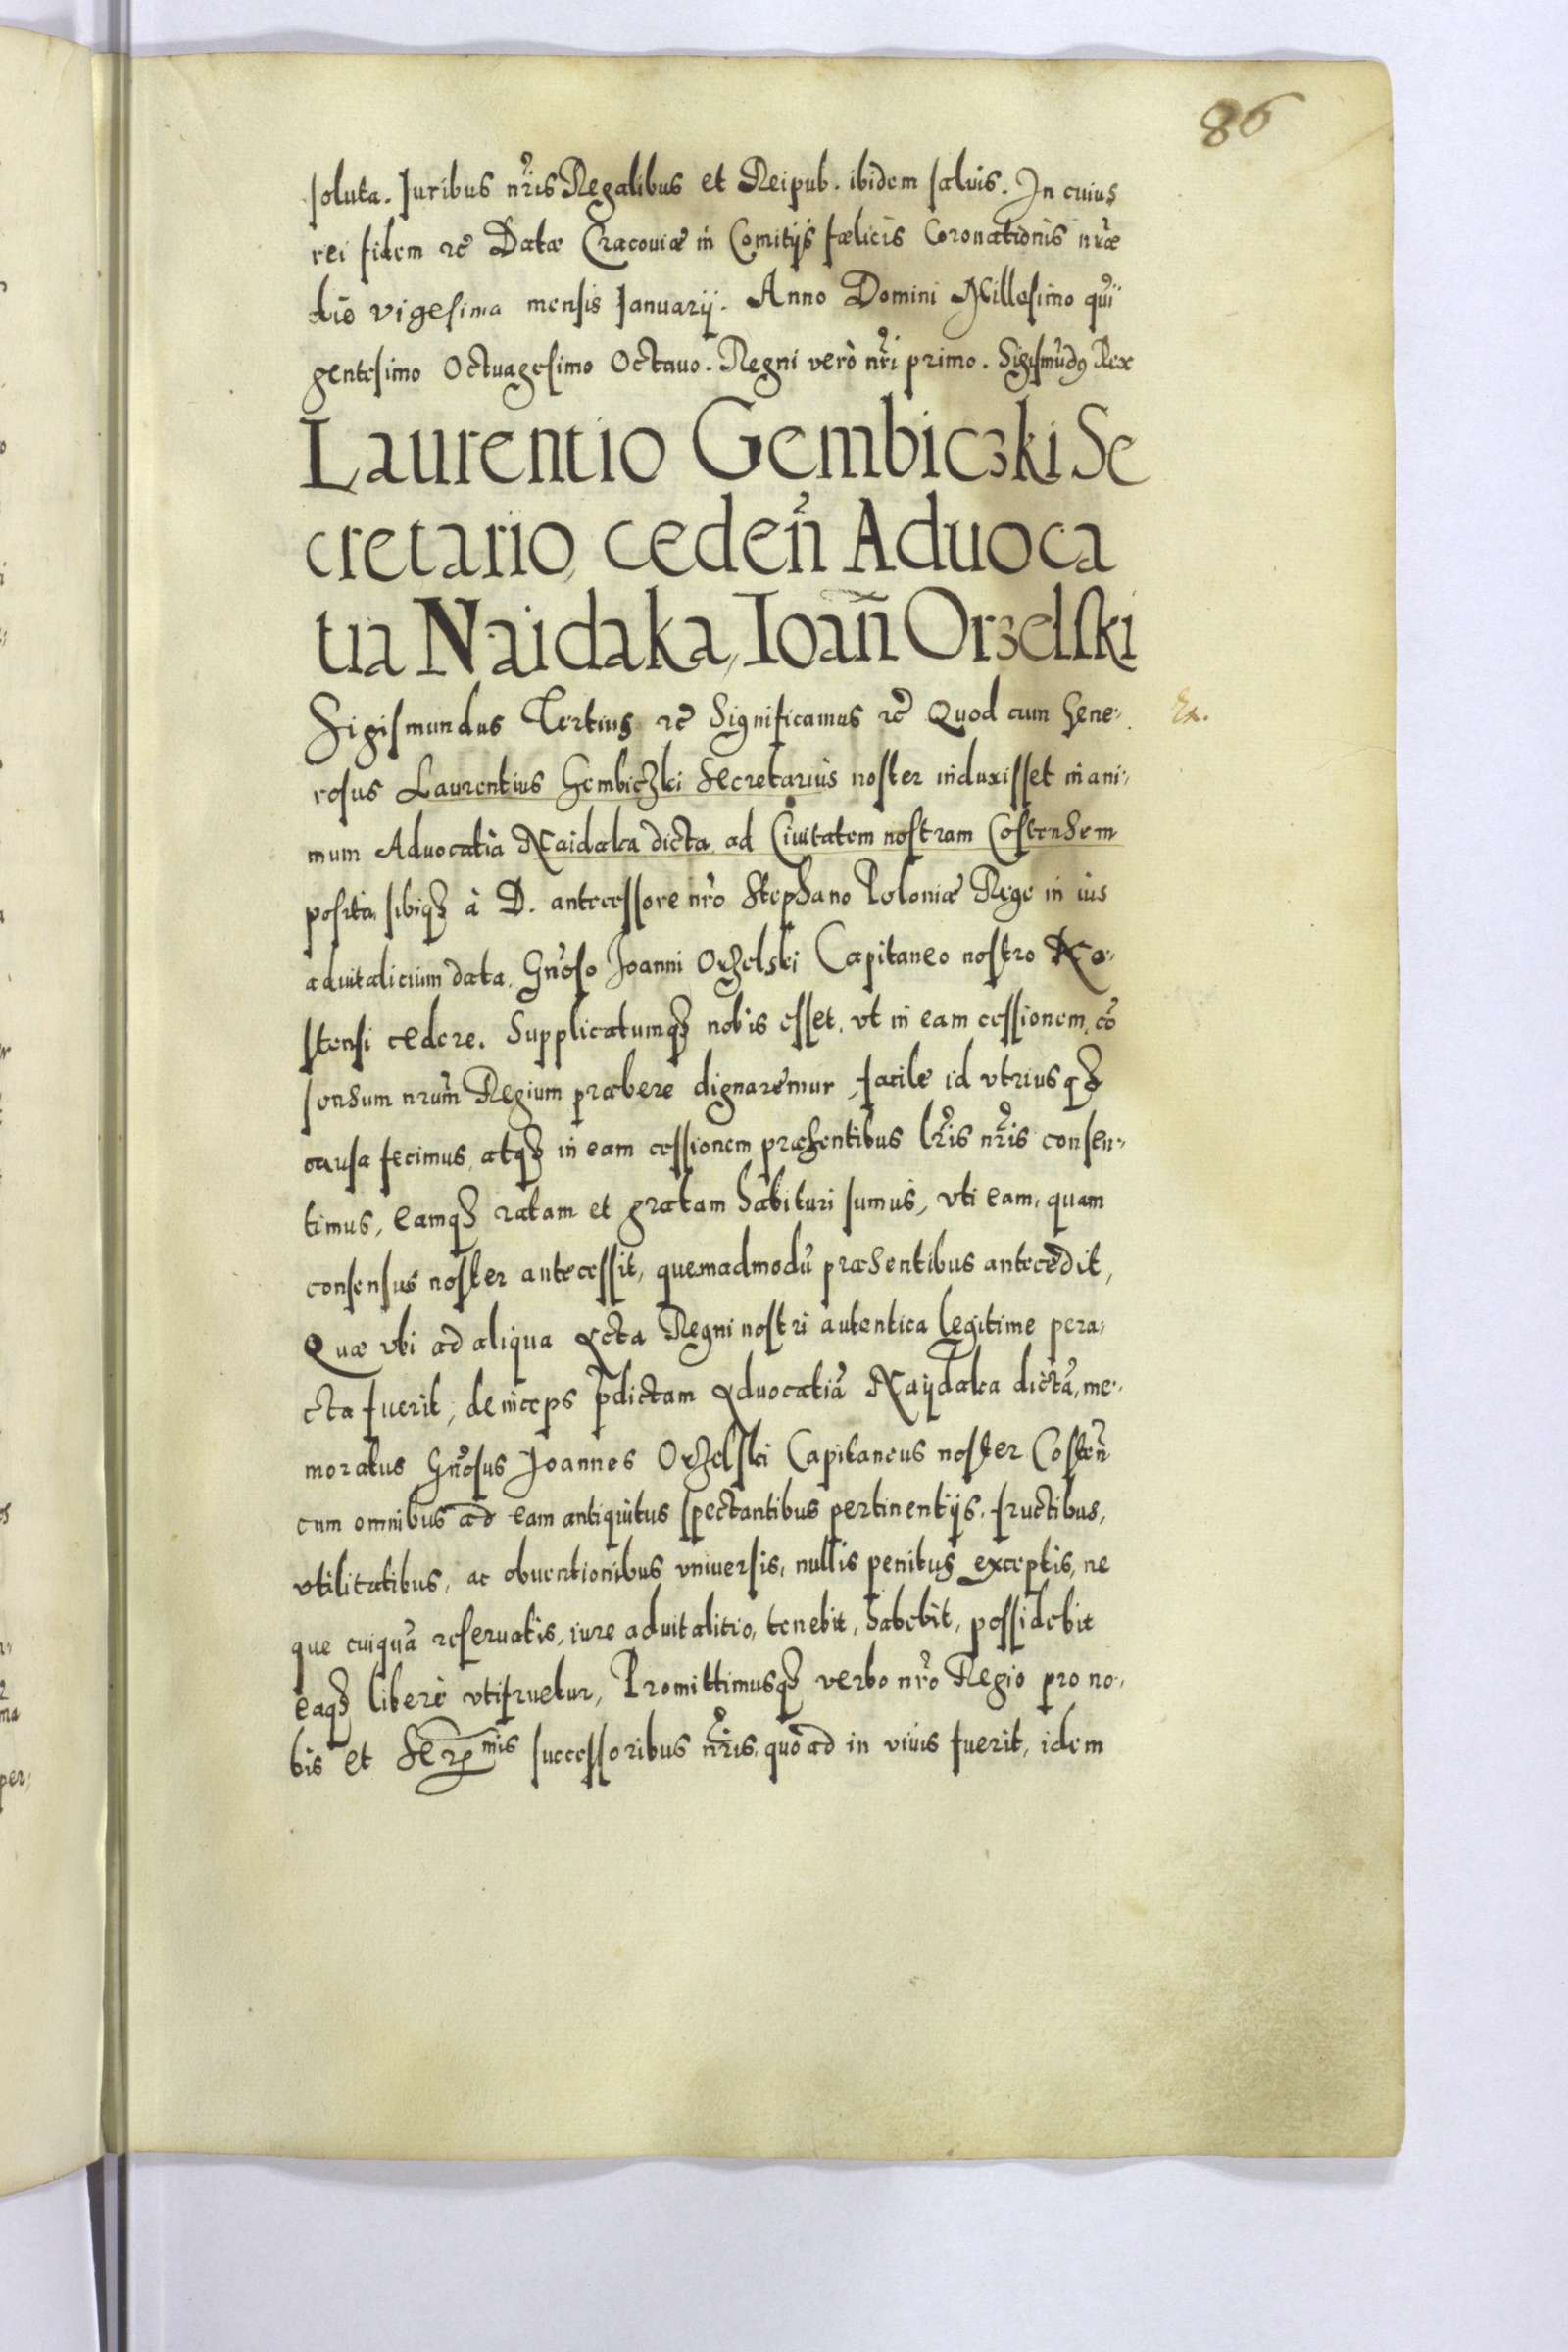 86
soluta. Juribus nr̃is Regalibus et Reipub. ibidem saluis. In cuius
rei fidem etc̃ Datæ Cracouiæ in Comitijs fælicis Coronationis nr̃æ
die vigesima mensis Januarij. Anno Domini Millesimo qui̇̃
gentesimo Octuagesimo Octauo. Regni verò nr̃i primo. Sigismũdꝰ Rex
Laurentio Gembiczki Se
cretario, cedeñ Aduoca
tia Naidaka, Ioañ Orzelski
Sigismundus Tertius etc̃ Significamus etc̃ Quod cum Gene-
rosus Laurentius Gembiczki Secretarius noster induxisset in ani-
mum Aduocatia Naidaka dicta, ad Ciuitatem nostram Costensem
posita, sibiqꝫ à D. antecessore nr̃o Stephano Poloniæ Rege in ius
aduitalicium data, Gñoso Joanni Orzelski Capitaneo nostro Co-
stensi cedere. Supplicatumqꝫ nobis esset, vt in eam cessionem, cõ
sensum nrũm Regium præbere dignaremur, facile id vtriusqꝫ
causa fecimus, atqꝫ in eam cessionem præsentibus lr̃is nr̃is consen-
timus, eamqꝫ ratam et gratam habituri sumus, vti eam, quam
consensus noster antecessit, quemadmodũ præsentibus antecedit,
Quæ vbi ad aliqua Acta Regni nostri autentica legitime pera-
cta fuerit, deinceps p̃dictam Aduocatiã Naijdaka dictã, me-
moratus Gñosus Joannes Orzelski Capitaneus noster Costeñ
cum omnibus ad eam antiquitus spectantibus pertinentijs, fructibus,
vtilitatibus, ac obuentionibus vniuersis, nullis penitus exceptis, ne
que cuiquã reseruatis, iure aduitalitio, tenebit, habebit, possidebit
eaqꝫ liberè vtifruetur, Promittimusqꝫ verbo nr̃o Regio pro no-
bis et Serᵐⁱˢ successoribus nr̃is, quoad in viuis fuerit, idem